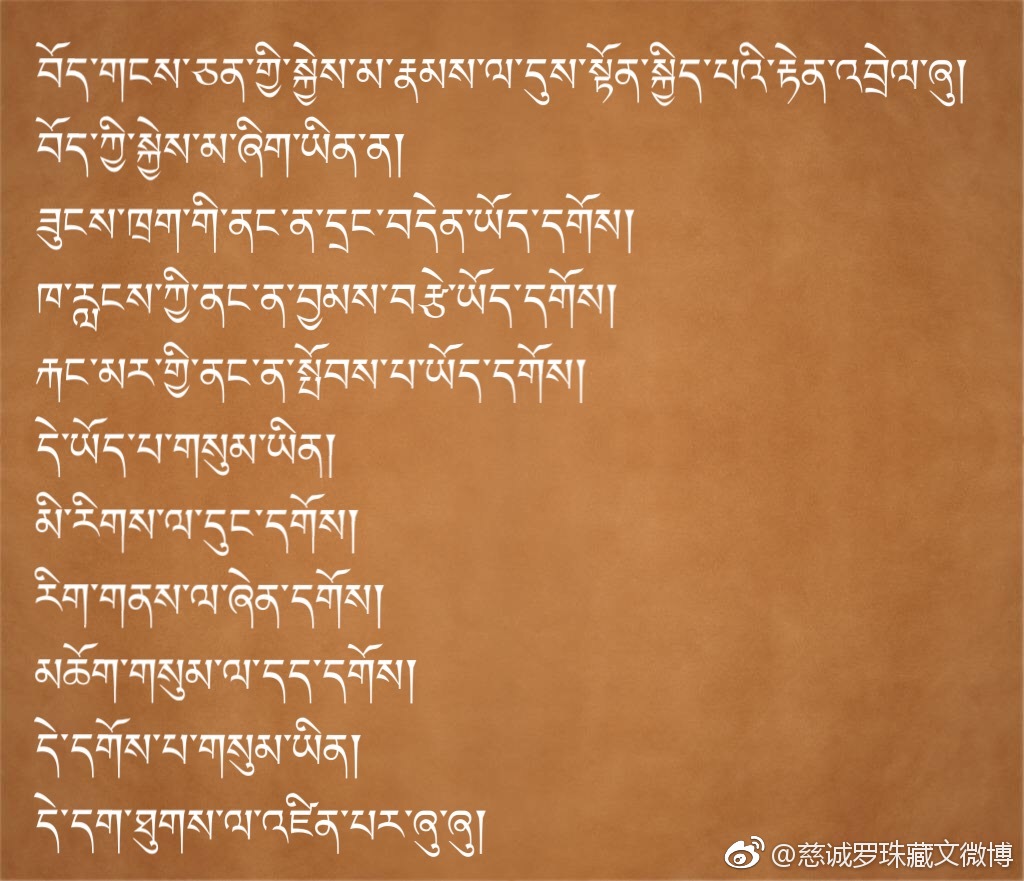 བོད་གངས་ཅན་གྱི་སྐྱེས་མ་རྣམས་ལ་དུས་སྟོན་སྐྱིད་པའི་རྟེན་འབྲེལ་ཞུ།
བོད་ཀྱི་སྐྱེས་མ་ཞིག་ཡིན་ན།
ཟུངས་ཁྲག་གི་ནང་ན་དྲང་བདེན་ཡོད་དགོས།
ཁ་རླངས་ཀྱི་ནང་ན་བྱམས་བརྩེ་ཡོད་དགོས།
རྐང་མར་གྱི་ནང་ན་སྤོབས་པ་ཡོད་དགོས།
དེ་ཡོད་པ་གསུམ་ཡིན།
མི་རིགས་ལ་དུང་དགོས།
རིག་གནས་ལ་ཞེན་དགོས།
མཆོག་གསུམ་ལ་དད་དགོས།
དེ་དགོས་པ་གསུམ་ཡིན།
དེ་དག་ཐུགས་ལ་འཛིན་པར་ཞུ་ཞུ།
@慈诚罗珠藏文微博